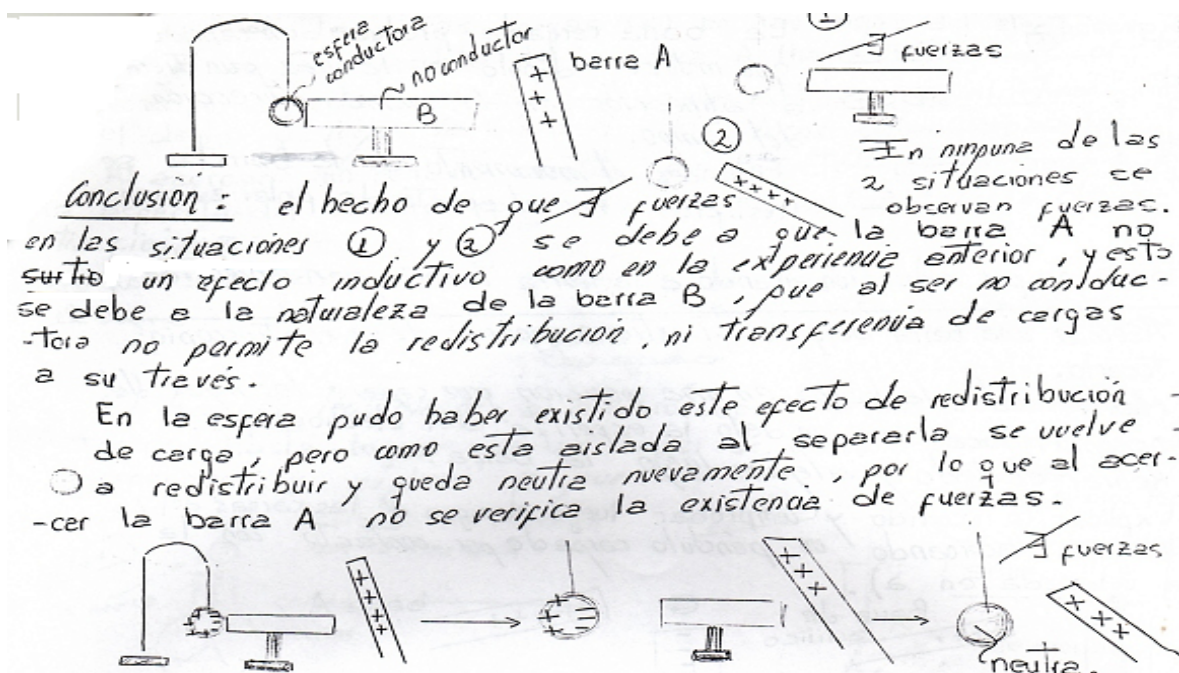 ①
esfera
conductora
no conductor
B
+ + +
barra A
∄ fuerzas
②
+ + + +
En ninguna de las
2 situaciones se
observan fuerzas.
Conclusión: el hecho de que ∄ fuerzas
en las situaciones ① y ② se debe a que la barra A no
surtio un efecto inductivo como en la experiencia anterior, y esto
se debe a la naturaleza de la barra B, que al ser no conduc-
-tora no permite la redistribución ni transferencia de cargas
a su través.
En la esfera pudo haber existido este efecto de redistribución
de carga, pero como esta aislada al separarla se vuelve
a redistribuir y queda neutra nuevamente, por lo que al acer-
-cer la barra A no se verifica la existencia de fuerzas.
+ + +
+ + +
∄ fuerzas
+ + +
neutra.